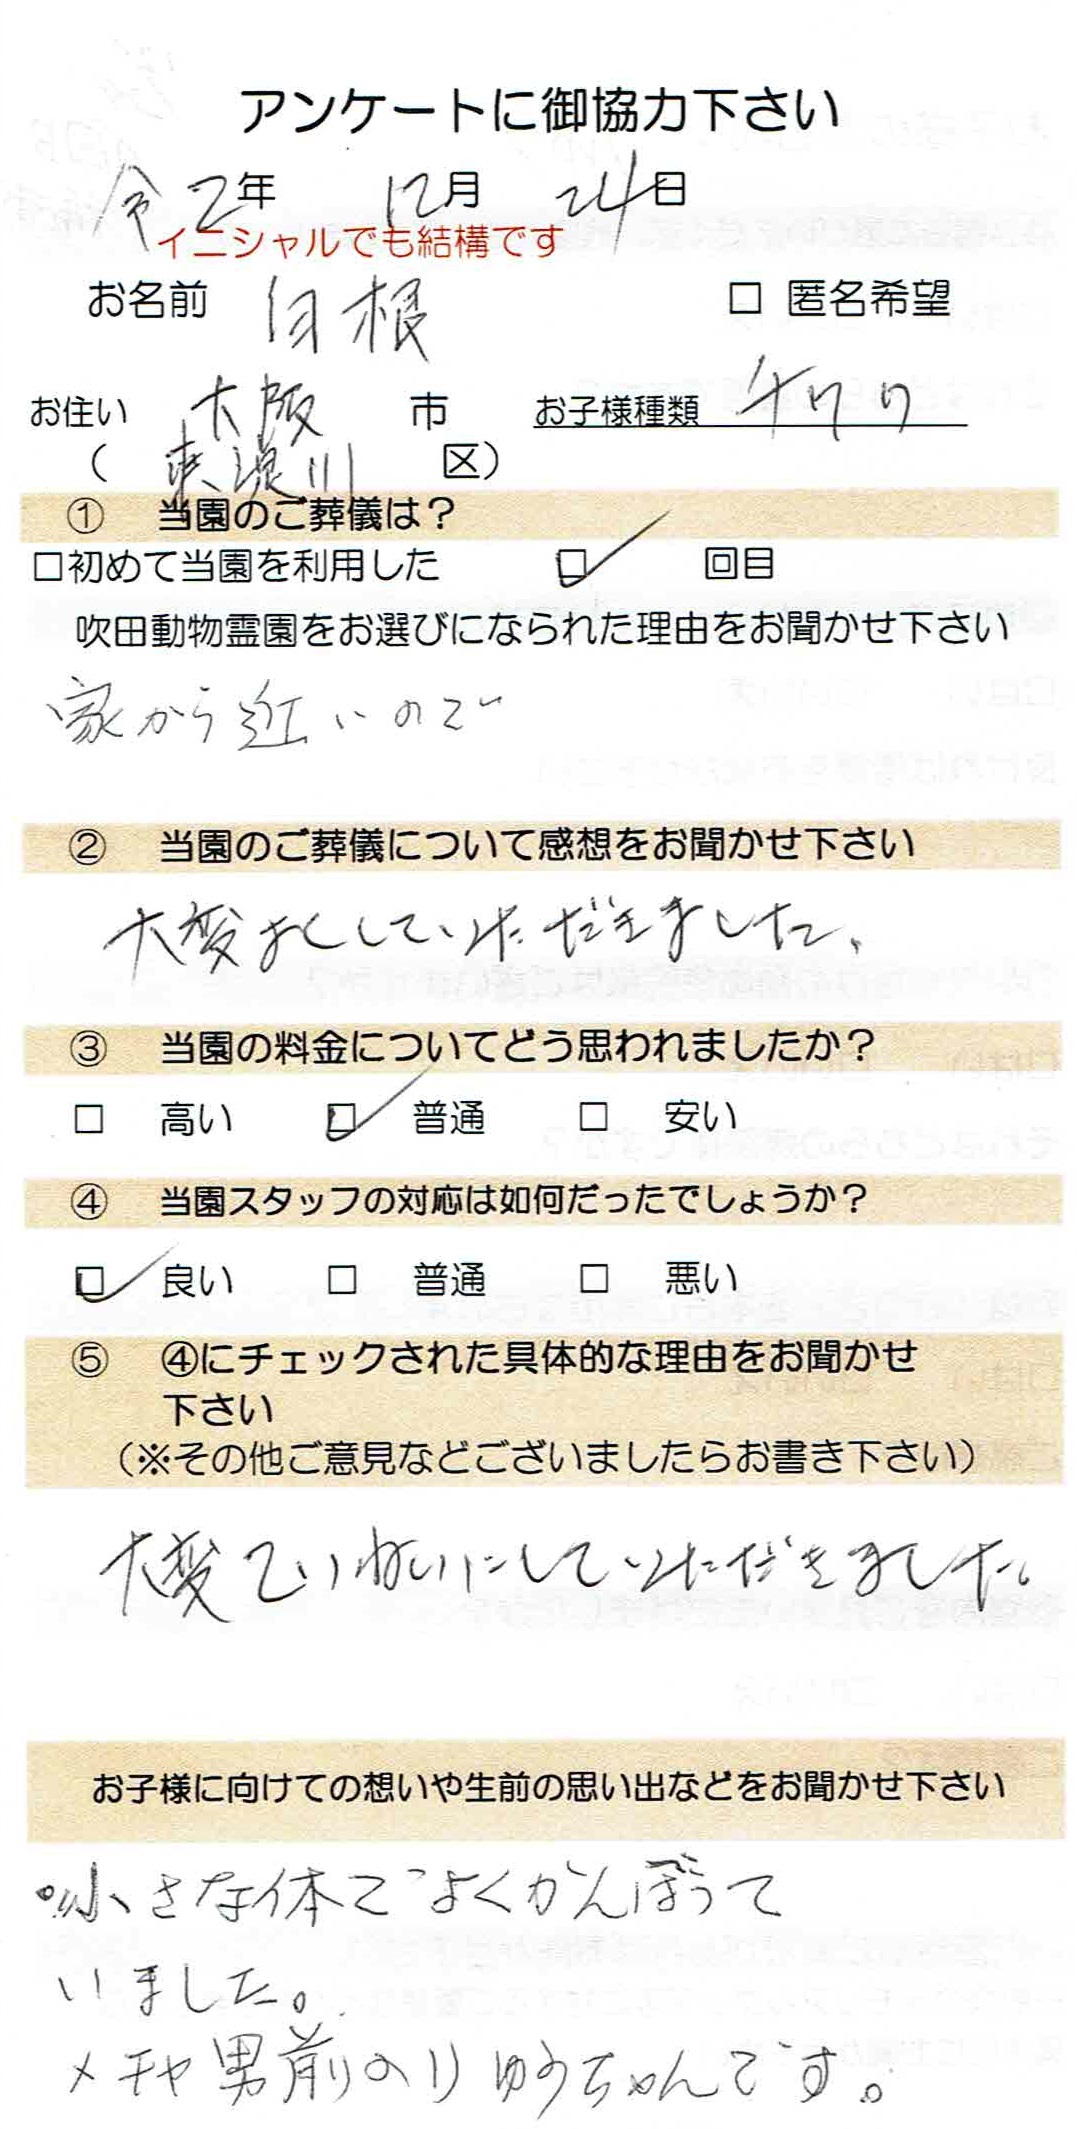 アンケートに御協力下さい
令2年 12月 24日
イニシャルでも結構です
お名前 白根 □ 匿名希望
お住い 大阪 市 お子様種類
( 東淀川 区)
① 当園のご葬儀は?
□初めて当園を利用した ☑ 回目
吹田動物霊園をお選びになられた理由をお聞かせ下さい
家から近いので
② 当園のご葬儀について感想をお聞かせ下さい
大変よくしていただきました。
③ 当園の料金についてどう思われましたか?
□ 高い ☑ 普通 □ 安い
④ 当園スタッフの対応は如何だったでしょうか?
☑ 良い □ 普通 □ 悪い
⑤ ④にチェックされた具体的な理由をお聞かせ
下さい
(※その他ご意見などございましたらお書き下さい)
大変ていねいにしていただきました。
お子様に向けての想いや生前の思い出などをお聞かせ下さい
小さな体でよくがんばって
いました。
メチャ男前のりゅうちゃんです。